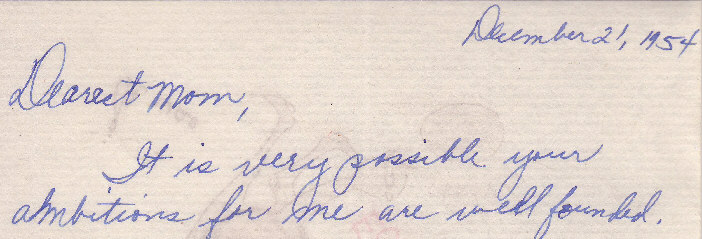 December 21, 1954
Dearest Mom,
It is very possible your
ambitions for me are well founded.